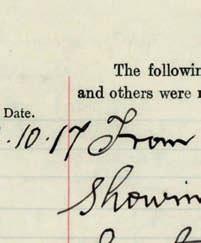 The followin
and others were
Date.
.10.17 From
Showin